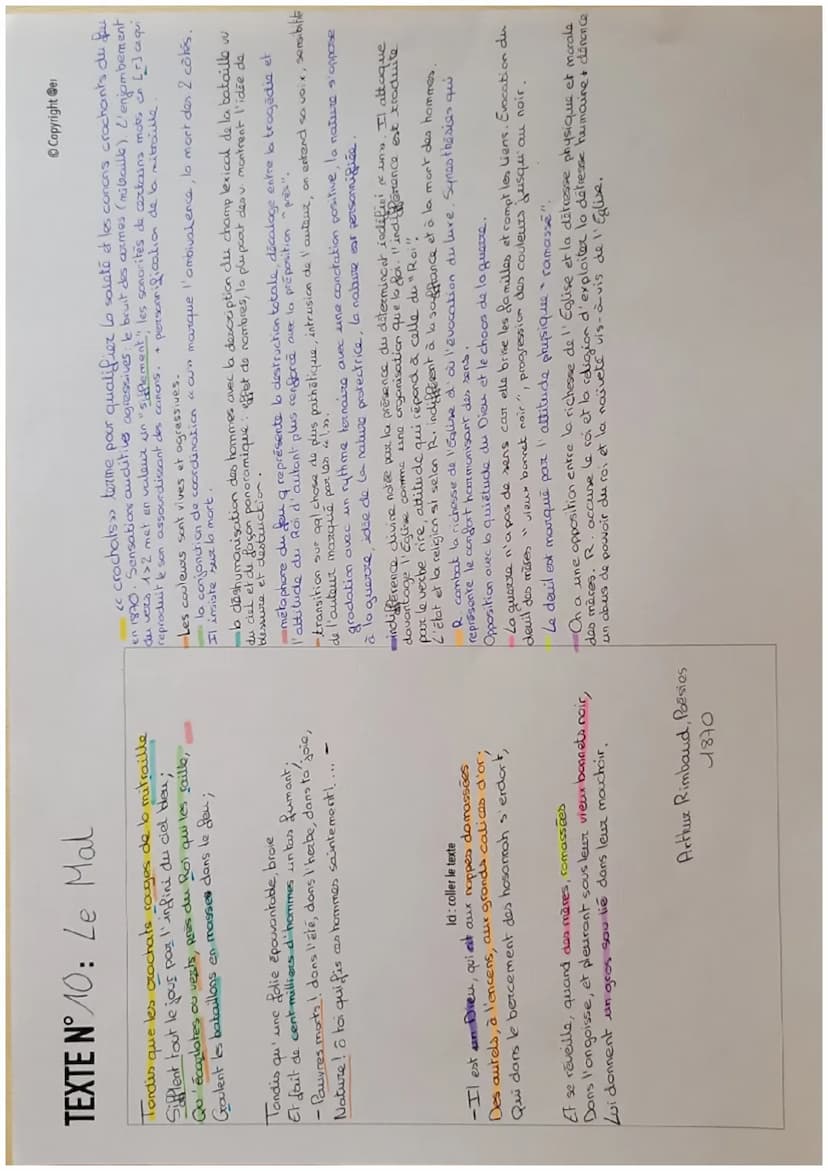 TEXTE N° 10: Le Mal
Tandis que les crachats rouges de la mitraille
Sifflent tout le jour par l'infini du ciel bleu;
Qu'écarlates ou verts, près du Roi qui les raille,
Croulent les bataillons en masse dans le feu;
Tandis qu'une folie épouvantable, broie
Et fait de cent milliers d'hommes un tas fumant;
- Pauvres morts! dans l'été, dans l'herbe, dans ta joie,
Nature! ô toi qui fis ces hommes saintement!... -
Ici : coller le texte
- Il est un Dieu, qui rit aux nappes damassées
Des autels, à l'encens, aux grands calices d'or;
Qui dans le bercement des hosannah s'endort,
Et se réveille, quand des mères, ramassées
Dans l'angoisse, et pleurant sous leur vieux bonnet noir,
Lui donnent un gros sou lié dans leur mouchoir.
Arthur Rimbaud, Poésies
1870
© Copyright
« crachats » terme pour qualifier la saleté et les canons crachants du feu
en 1870. Sensations auditives agressives, le bruit des armes (mitraille). L'enjambement
du vers 1>2 met en valeur un "sifflement"; les sonorités de certains mots en [r] ce qui
reproduit le son assourdissant des canons. + personification de la mitraille.
Les couleurs sont vives et agressives.
la conjonction de coordination « ou » marque l'ambivalence, la mort des 2 côtés.
Il insiste sur la mort.
la déshumanisation des hommes avec la description du champ lexical de la bataille vu
du ciel et de façon panoramique : effet de nombres, la plupart des v. montrent l'idée de
blessure et destruction.
métaphore du feu q représente la destruction totale, décalage entre la tragédie et
l'attitude du Roi d'autant plus renforcé avec la préposition "près".
transition sur qql chose de plus pathétique, intrusion de l'auteur, on entend sa voix, sensibilité
de l'auteur marqué par les « ! ».
gradation avec un rythme ternaire avec une conotation positive, la nature s'oppose
à la guerre, idée de la nature protectrice, la nature est personnifiée.
indifférence divine notée par la présence du déterminant indéfini « un ». Il attaque
davantage l'Église comme une organisation que la foi. l'indifférence est traduite
par le verbe rire, attitude qui répond à celle du "Roi".
L'état et la religion st selon R. indifférent à la souffrance et à la mort des hommes.
R combat la richesse de l'Eglise d'où l'évocation du luxe. Synesthésies qui
représente le confort harmonisant des sens.
Opposition avec la quiétude du Dieu et le chaos de la guerre.
La guerre n'a pas de sens car elle brise les familles et rompt les liens. Evocation du
deuil des mères "vieux bonnet noir", progression des couleurs jusqu'au noir.
Le deuil est marqué par l'attitude physique "ramassé".
On a une opposition entre la richesse de l'Église et la détresse physique et morale
des mères. R. accuse le roi et la religion d'exploiter la détresse humaine + dénonce
un abus de pouvoir du roi et la naïveté vis-à-vis de l'Eglise.